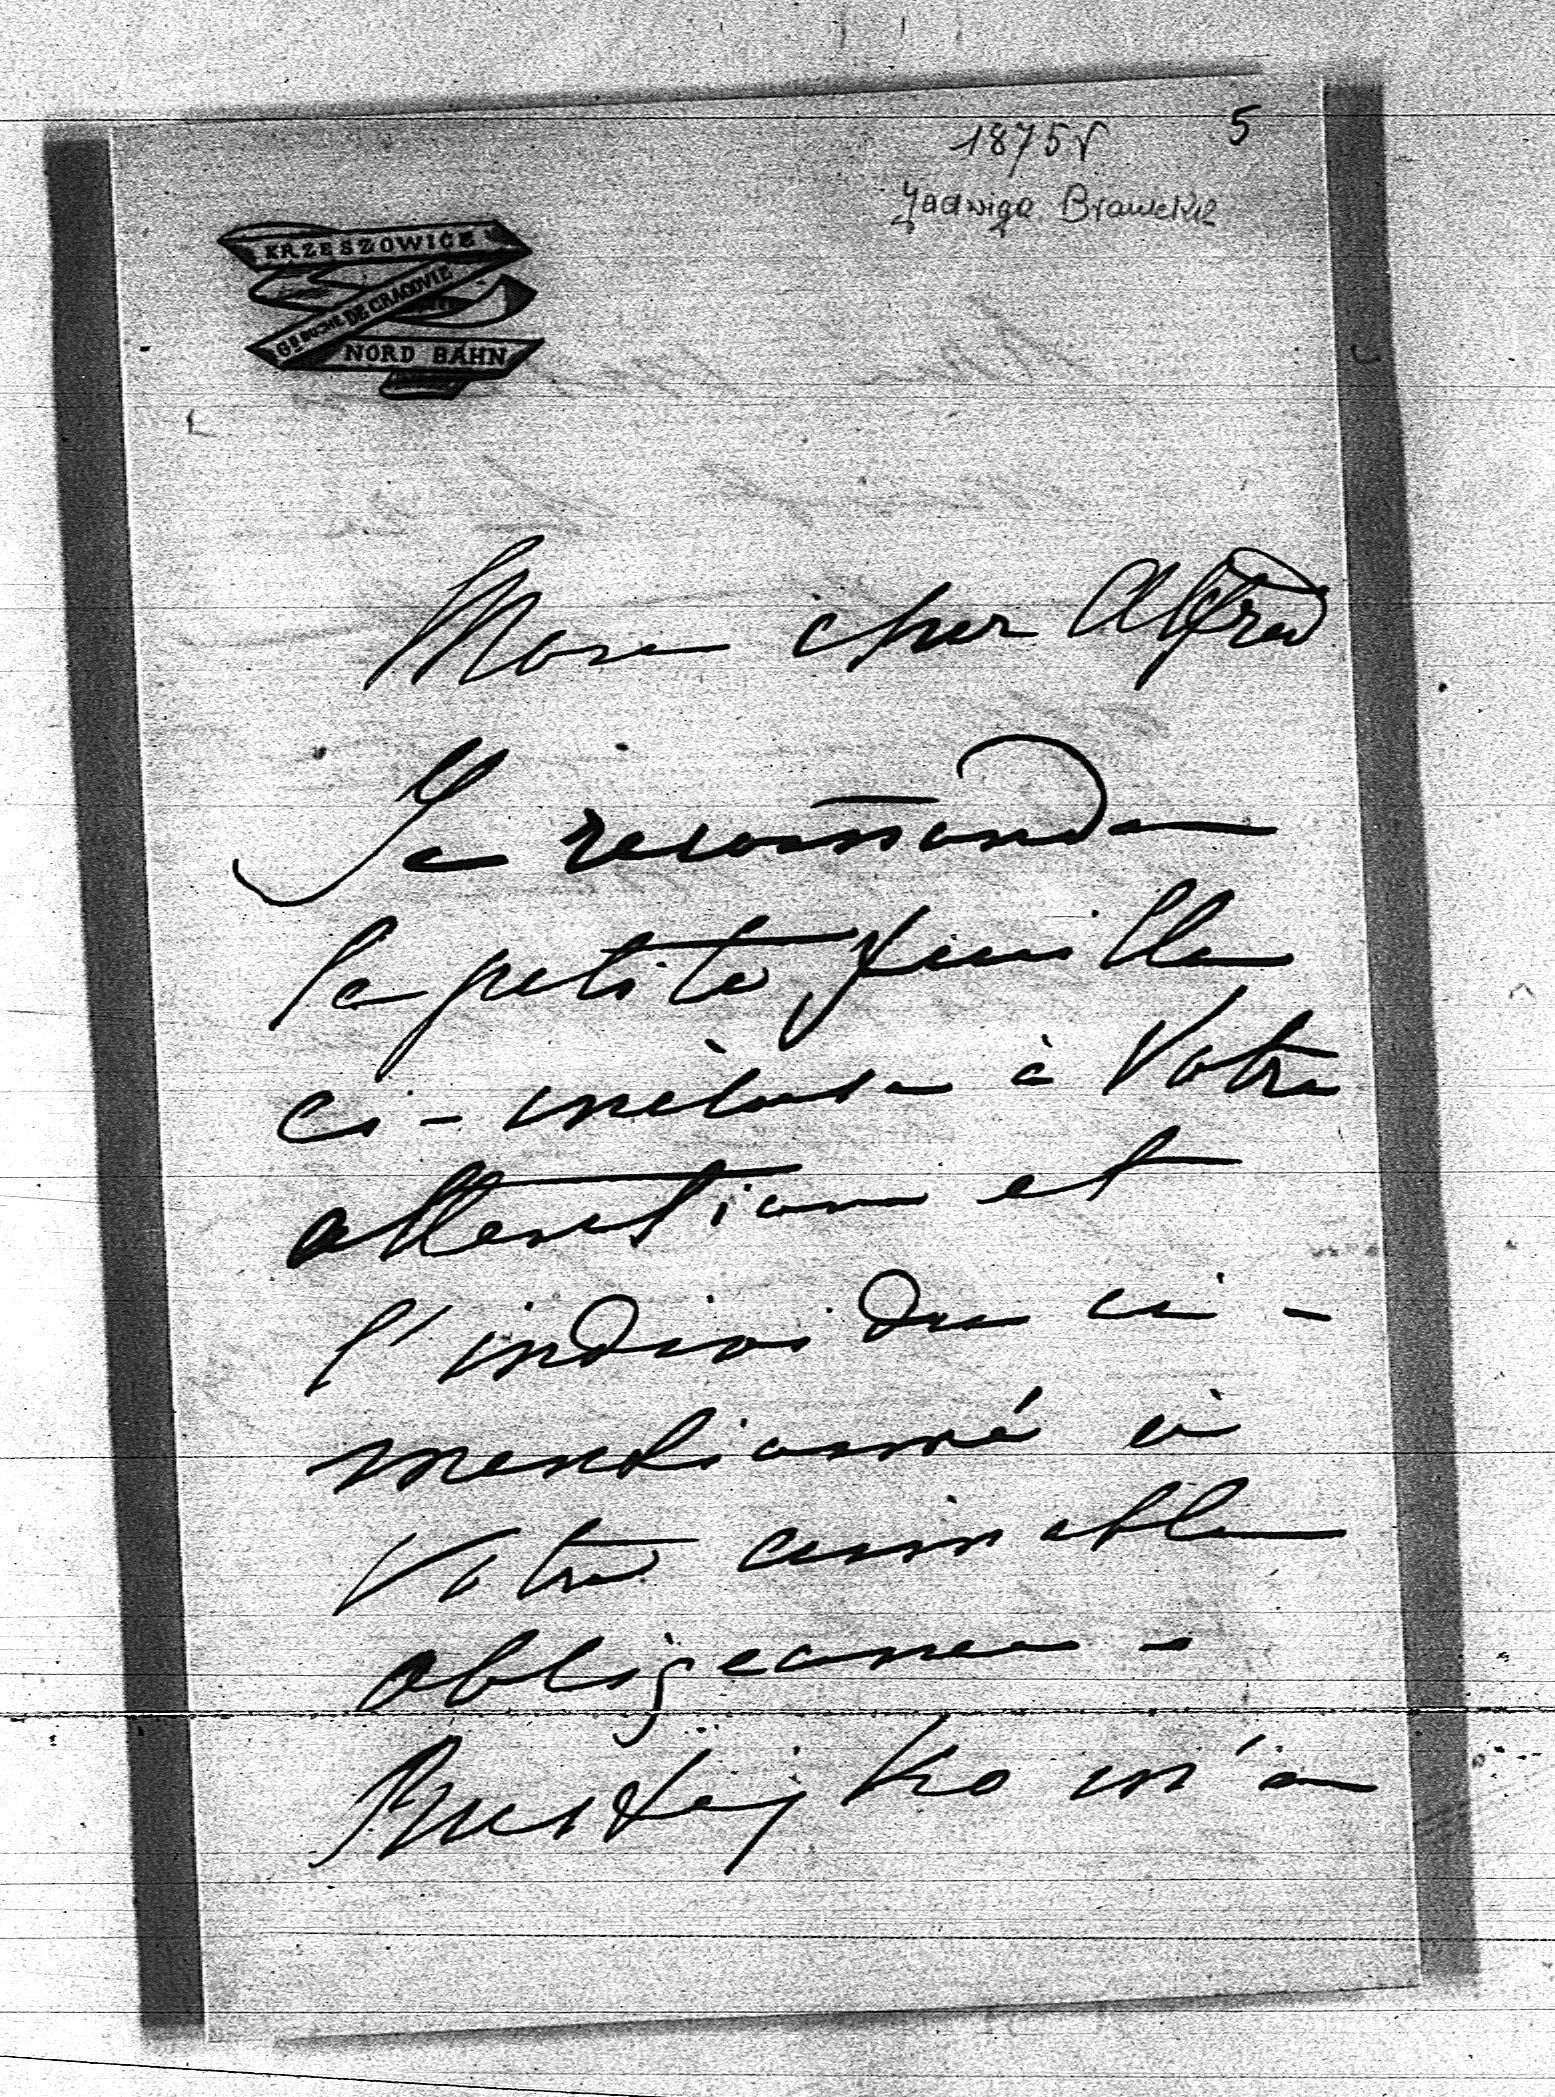 1875 r
5
Jadwiga Branicka
KRZESZOWICE
GD DUCHÉ DE CRACOVIE
NORD BAHN
Mon cher Alfred
Je recom̄ande
la petite feuille
ci-incluse à Votre
attention et
l'individu ci-
mentionné à
Votre aimable
obligeance -
m'a